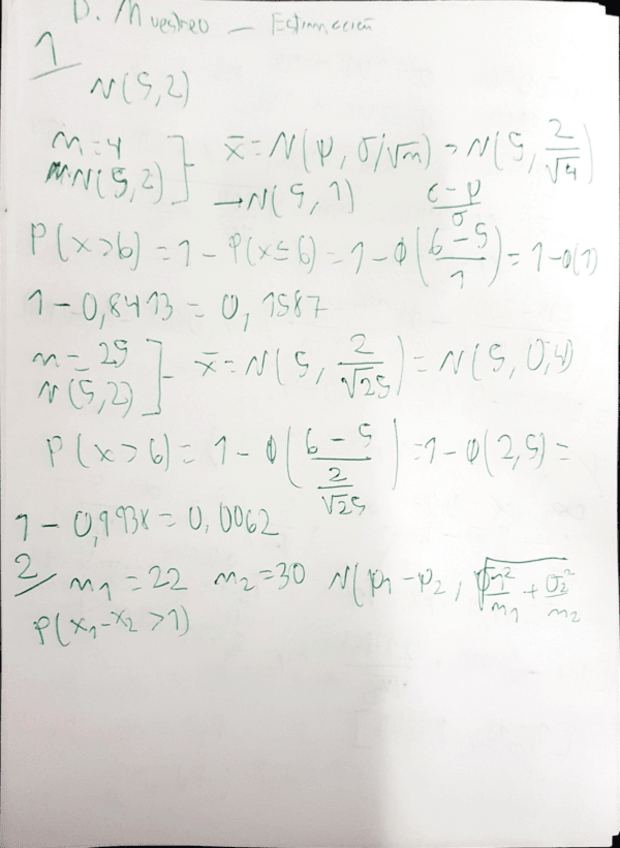 D. Muestreo — Estimación
1
N(5,2)
n=4 ] x̄=N(μ, σ/√n) → N(5, 2/√4)
N(5,2) → N(5,1) c-μ/σ
P(x>6) = 1 - P(x≤6) = 1-Φ(6-5/1) = 1-Φ(1)
1-0,8413 = 0,1587
n=25 ] x̄=N(5, 2/√25) = N(5, 0,4)
N(5,2)
P(x>6) = 1-Φ(6-5/2/√25) = 1-Φ(2,5) =
1-0,9938 = 0,0062
2/ n1=22 n2=30 N(μ1-μ2, √σ1²/n1 + σ2²/n2
P(x1-x2 >1)